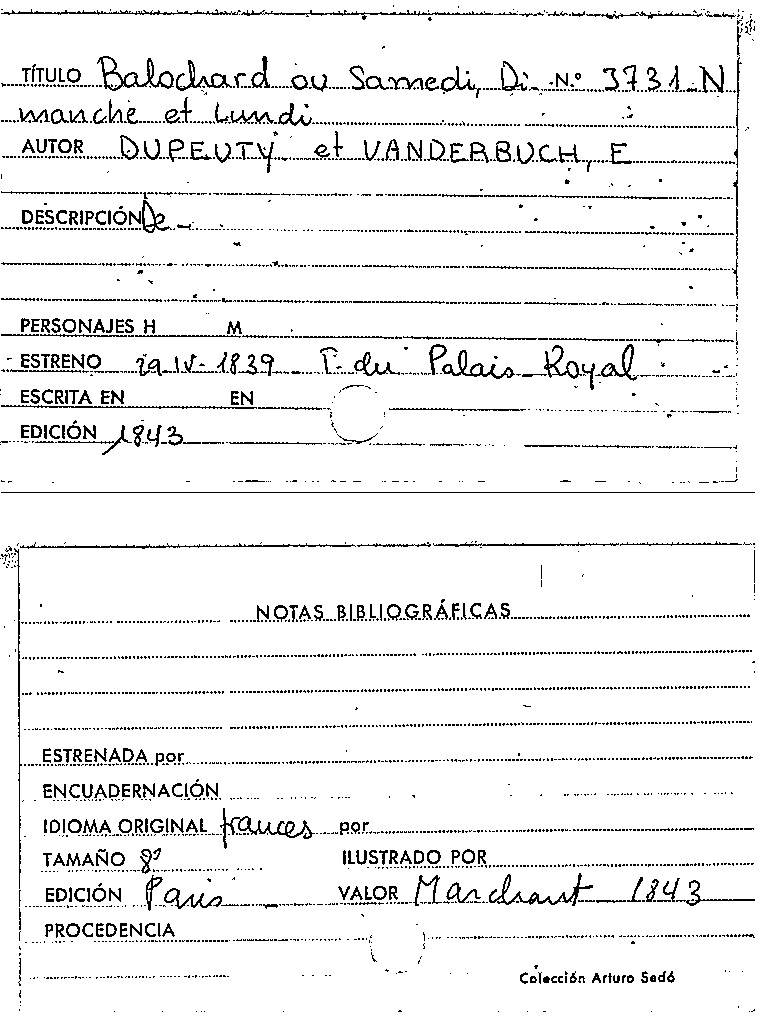 TÍTULO Balochard ou Samedi, Di- N.º 3731-N
manche et Lundi
AUTOR DUPEUTY et VANDERBUCH, E
DESCRIPCIÓN De -
PERSONAJES H M
ESTRENO 29-IV-1839 - T. du Palais-Royal
ESCRITA EN EN
EDICIÓN 1843
NOTAS BIBLIOGRÁFICAS
ESTRENADA por
ENCUADERNACIÓN
IDIOMA ORIGINAL frances por
TAMAÑO 8º ILUSTRADO POR
EDICIÓN Paris VALOR Marchant 1843
PROCEDENCIA
Colección Arturo Sedó